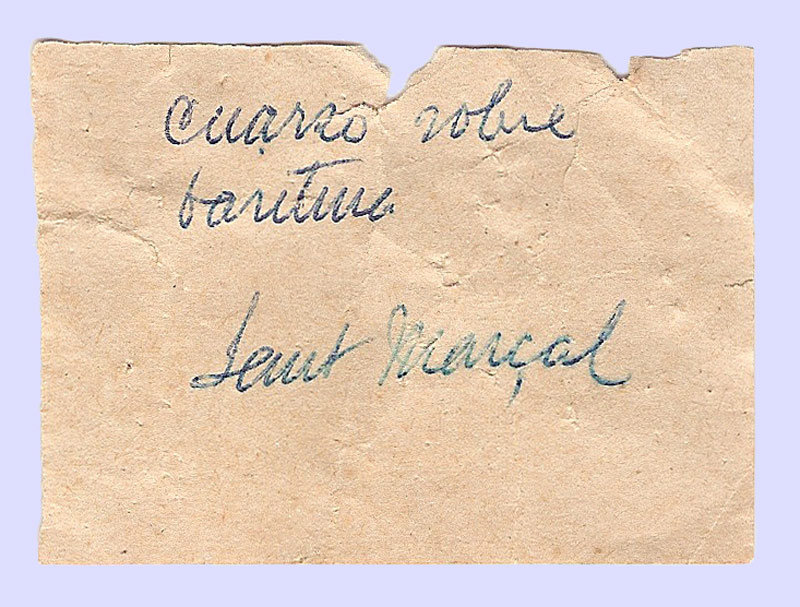 Cuarzo sobre
baritina
Sant Marçal